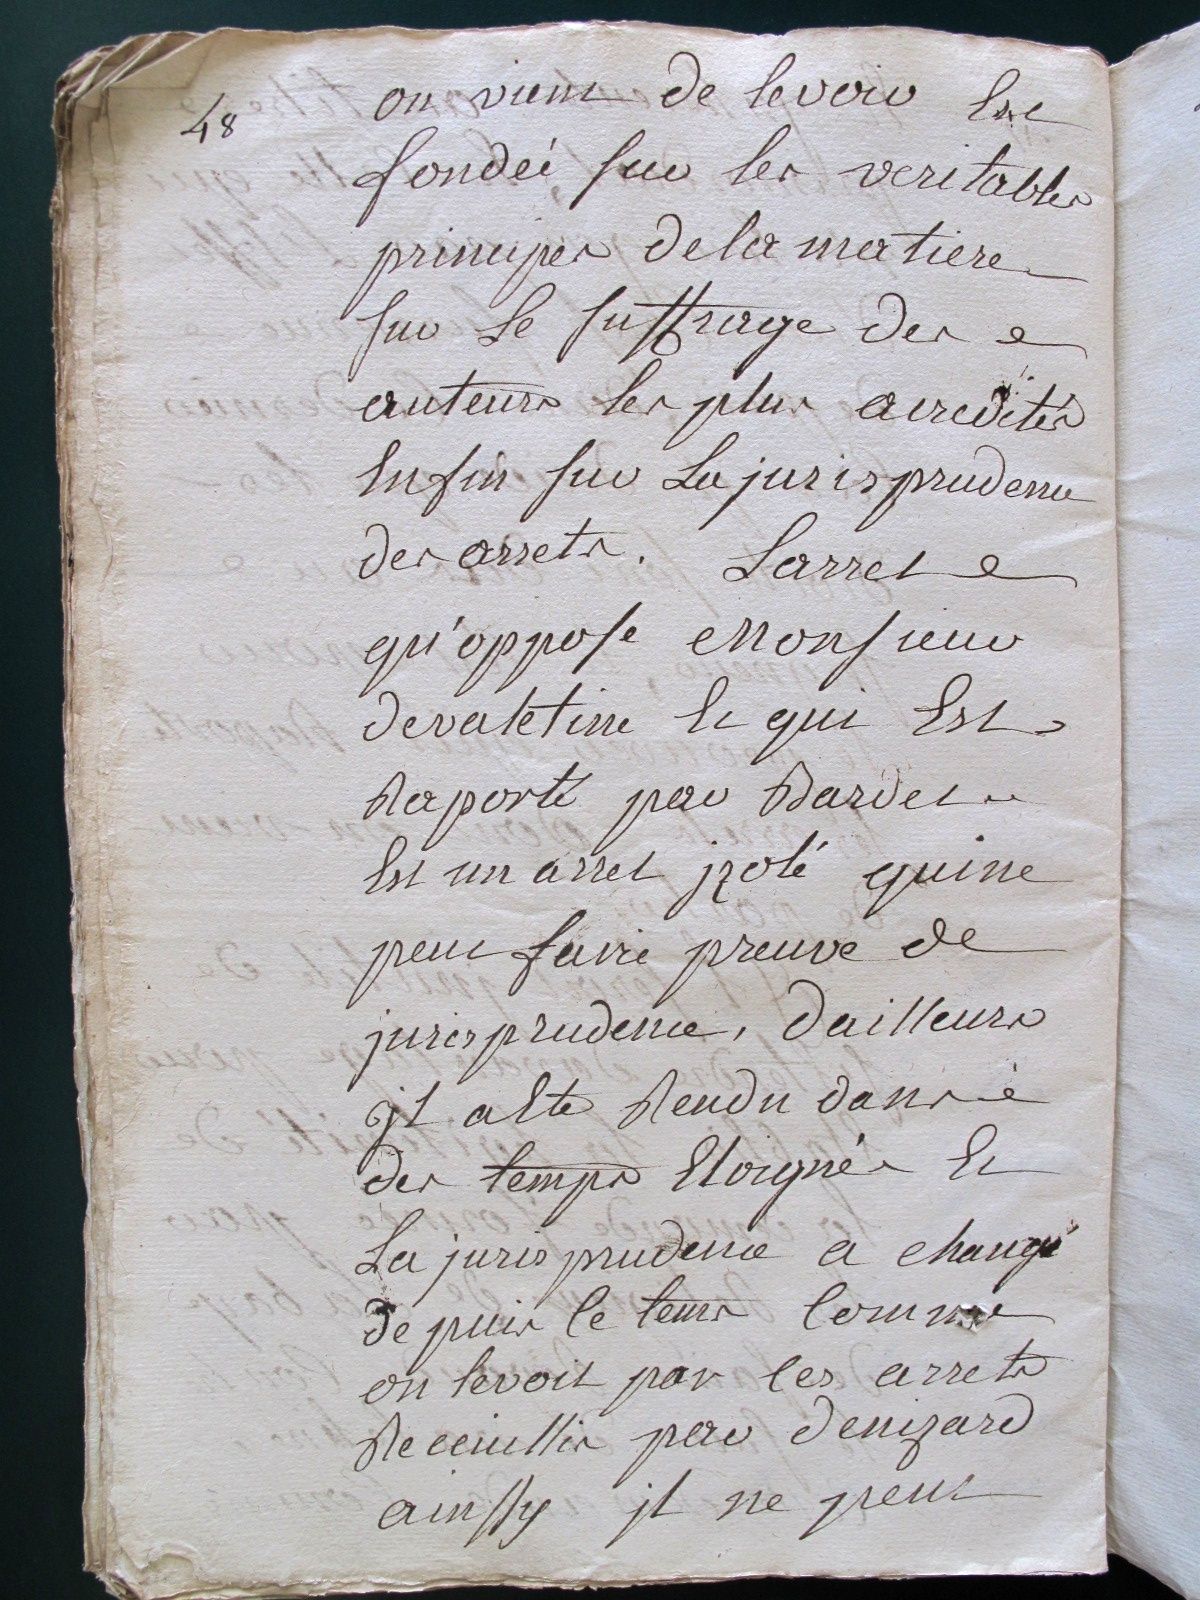 48
on vient de le voir Est
fondeé sur les veritables
principes de la matiere
sur Le suffrage des
auteurs les plus accredités
Enfin sur La jurisprudence
des arrets. L'arret
qu'oppose Monsieur
devaletine Et qui Est
Raporté par Bardet
Est un arret jzolé qui ne
peut faire preuve de
jurisprudence, d'ailleurs
jl a Eté Rendu dans
des temps Eloignés Et
La jurisprudence a changé
depuis ce tems Comme
on le voit par les arrets
Receuillis par denizard
ainssy jl ne peut